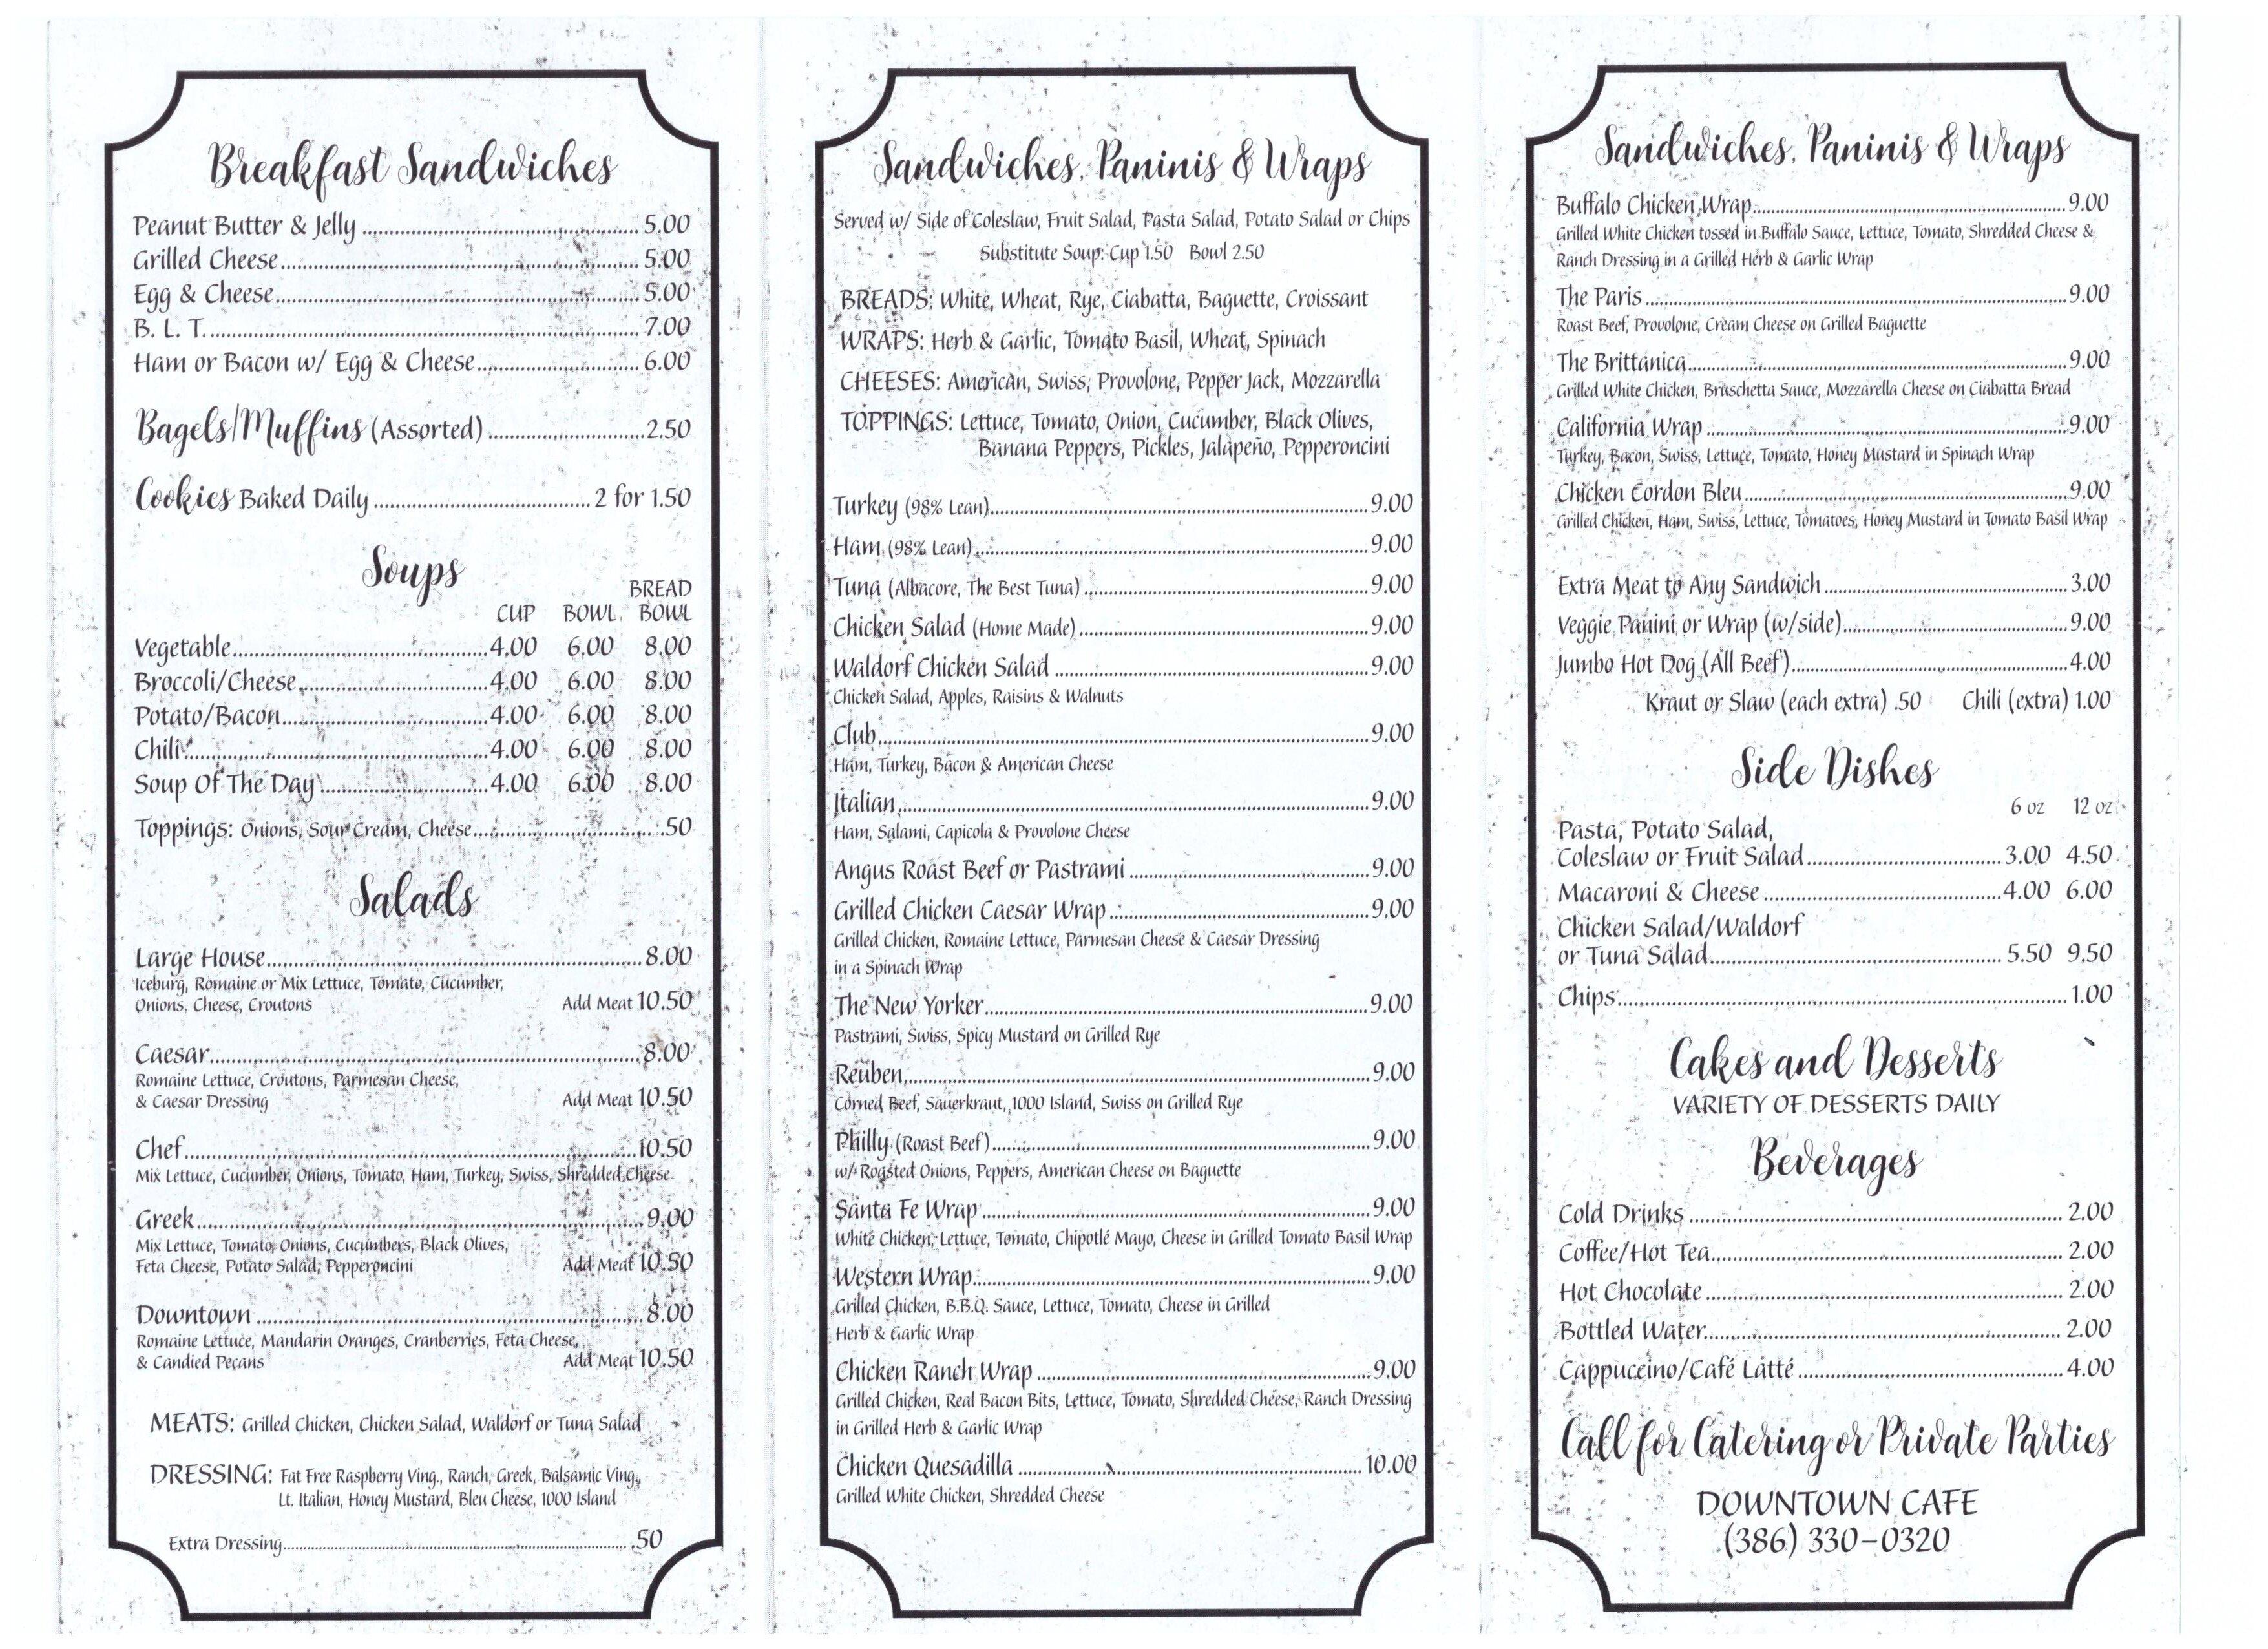 Breakfast Sandwiches
Peanut Butter & Jelly 5.00
Grilled Cheese 5.00
Egg & Cheese 5.00
B. L. T. 7.00
Ham or Bacon w/ Egg & Cheese 6.00
Bagels/Muffins (Assorted) 2.50
Cookies Baked Daily 2 for 1.50
Soups
BREAD
CUP BOWL BOWL
Vegetable 4.00 6.00 8.00
Broccoli/Cheese 4.00 6.00 8.00
Potato/Bacon 4.00 6.00 8.00
Chili 4.00 6.00 8.00
Soup Of The Day 4.00 6.00 8.00
Toppings: Onions, Sour Cream, Cheese .50
Salads
Large House 8.00
Iceburg, Romaine or Mix Lettuce, Tomato, Cucumber,
Onions, Cheese, Croutons Add Meat 10.50
Caesar 8.00
Romaine Lettuce, Croutons, Parmesan Cheese,
& Caesar Dressing Add Meat 10.50
Chef 10.50
Mix Lettuce, Cucumber, Onions, Tomato, Ham, Turkey, Swiss, Shredded Cheese
Greek 9.00
Mix Lettuce, Tomato, Onions, Cucumbers, Black Olives,
Feta Cheese, Potato Salad, Pepperoncini Add Meat 10.50
Downtown 8.00
Romaine Lettuce, Mandarin Oranges, Cranberries, Feta Cheese,
& Candied Pecans Add Meat 10.50
MEATS: Grilled Chicken, Chicken Salad, Waldorf or Tuna Salad
DRESSING: Fat Free Raspberry Ving., Ranch, Greek, Balsamic Ving.,
Lt. Italian, Honey Mustard, Bleu Cheese, 1000 Island
Extra Dressing .50
Sandwiches, Paninis & Wraps
Served w/ Side of Coleslaw, Fruit Salad, Pasta Salad, Potato Salad or Chips
Substitute Soup: Cup 1.50 Bowl 2.50
BREADS: White, Wheat, Rye, Ciabatta, Baguette, Croissant
WRAPS: Herb & Garlic, Tomato Basil, Wheat, Spinach
CHEESES: American, Swiss, Provolone, Pepper Jack, Mozzarella
TOPPINGS: Lettuce, Tomato, Onion, Cucumber, Black Olives,
Banana Peppers, Pickles, Jalapeño, Pepperoncini
Turkey (98% Lean) 9.00
Ham (98% Lean) 9.00
Tuna (Albacore, The Best Tuna) 9.00
Chicken Salad (Home Made) 9.00
Waldorf Chicken Salad 9.00
Chicken Salad, Apples, Raisins & Walnuts
Club 9.00
Ham, Turkey, Bacon & American Cheese
Italian 9.00
Ham, Salami, Capicola & Provolone Cheese
Angus Roast Beef or Pastrami 9.00
Grilled Chicken Caesar Wrap 9.00
Grilled Chicken, Romaine Lettuce, Parmesan Cheese & Caesar Dressing
in a Spinach Wrap
The New Yorker 9.00
Pastrami, Swiss, Spicy Mustard on Grilled Rye
Reuben 9.00
Corned Beef, Sauerkraut, 1000 Island, Swiss on Grilled Rye
Philly (Roast Beef) 9.00
w/ Roasted Onions, Peppers, American Cheese on Baguette
Santa Fe Wrap 9.00
White Chicken, Lettuce, Tomato, Chipotlé Mayo, Cheese in Grilled Tomato Basil Wrap
Western Wrap 9.00
Grilled Chicken, B.B.Q. Sauce, Lettuce, Tomato, Cheese in Grilled
Herb & Garlic Wrap
Chicken Ranch Wrap 9.00
Grilled Chicken, Real Bacon Bits, Lettuce, Tomato, Shredded Cheese, Ranch Dressing
in Grilled Herb & Garlic Wrap
Chicken Quesadilla 10.00
Grilled White Chicken, Shredded Cheese
Sandwiches, Paninis & Wraps
Buffalo Chicken Wrap 9.00
Grilled White Chicken tossed in Buffalo Sauce, Lettuce, Tomato, Shredded Cheese &
Ranch Dressing in a Grilled Herb & Garlic Wrap
The Paris 9.00
Roast Beef, Provolone, Cream Cheese on Grilled Baguette
The Brittanica 9.00
Grilled White Chicken, Bruschetta Sauce, Mozzarella Cheese on Ciabatta Bread
California Wrap 9.00
Turkey, Bacon, Swiss, Lettuce, Tomato, Honey Mustard in Spinach Wrap
Chicken Cordon Bleu 9.00
Grilled Chicken, Ham, Swiss, Lettuce, Tomatoes, Honey Mustard in Tomato Basil Wrap
Extra Meat to Any Sandwich 3.00
Veggie Panini or Wrap (w/side) 9.00
Jumbo Hot Dog (All Beef) 4.00
Kraut or Slaw (each extra) .50 Chili (extra) 1.00
Side Dishes
6 oz 12 oz
Pasta, Potato Salad,
Coleslaw or Fruit Salad 3.00 4.50
Macaroni & Cheese 4.00 6.00
Chicken Salad/Waldorf
or Tuna Salad 5.50 9.50
Chips 1.00
Cakes and Desserts
VARIETY OF DESSERTS DAILY
Beverages
Cold Drinks 2.00
Coffee/Hot Tea 2.00
Hot Chocolate 2.00
Bottled Water 2.00
Cappuccino/Café Latté 4.00
Call for Catering or Private Parties
DOWNTOWN CAFE
(386) 330-0320